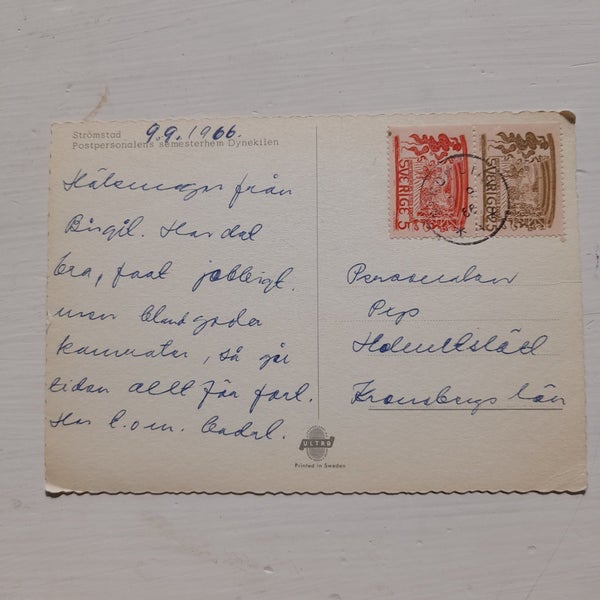 Strömstad
Postpersonalens semesterhem Dynekilen
9.9.1966.
Hälsningar från
Birgit. Har det
bra, fast jobbigt.
men bland goda
kamrater, så går
tiden allt för fort.
Har t.o.m. badat.
SVERIGE 5
SVERIGE
Personalen
Pip
Kronobergs län
ULTRA
Printed in Sweden